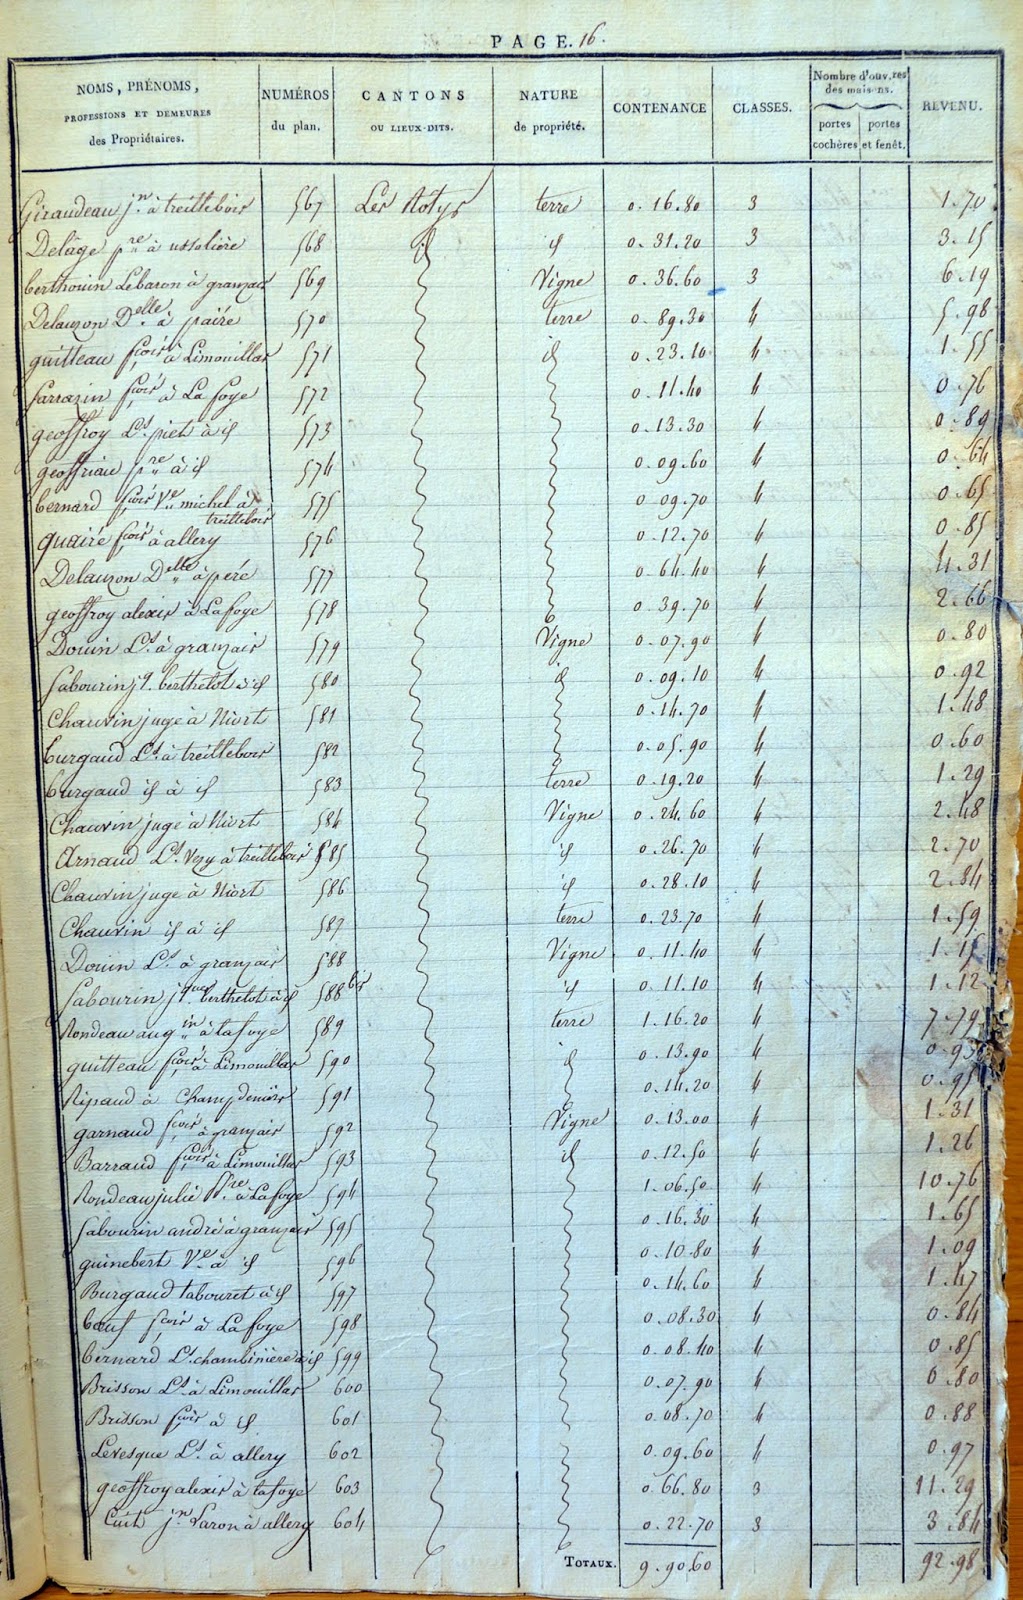 PAGE. 16.
NOMS, PRÉNOMS, PROFESSIONS ET DEMEURES des Propriétaires. NUMÉROS du plan. CANTONS OU LIEUX-DITS. NATURE de propriété. CONTENANCE CLASSES. Nombre d'ouv.res des maisons. portes cochères portes et fenêt. REVENU.
Giraudeau jn à treillebois 567 Les Notys terre 0.16.80 3 1.70
Delâge pre à ussolière 568 id id 0.31.20 3 3.15
berthouin Lebaron à granzais 569 Vigne 0.36.60 3 6.19
Delauzon Delle à paire 570 terre 0.89.30 4 5.98
guitteau fçois à Limouillas 571 id 0.23.10 4 1.55
Sarrazin fçois à La foye 572 0.11.40 4 0.76
geoffroy Ls piet à id 573 0.13.30 4 0.89
geoffriau pre à id 574 0.09.60 4 0.64
bernard fçois Ve michel à treillebois 575 0.09.70 4 0.65
quairé fçois à allery 576 0.12.70 4 0.85
Delauzon Delle à péré 577 0.64.40 4 4.31
geoffroy alexis à Lafoye 578 0.39.70 4 2.66
Douin Ls à granzais 579 Vigne 0.07.90 4 0.80
Sabourin jq. berthelot à id 580 id 0.09.10 4 0.92
Chauvin juge à Niort 581 0.14.70 4 1.48
burgaud Ls à treillebois 582 0.05.90 4 0.60
burgaud id à id 583 terre 0.19.20 4 1.29
Chauvin juge à Niort 584 Vigne 0.24.60 4 2.48
Arnaud Ls Vzy à treillebois 585 id 0.26.70 4 2.70
Chauvin juge à Niort 586 id 0.28.10 4 2.84
Chauvin id à id 587 terre 0.23.70 4 1.59
Douin Ls à granzais 588 Vigne 0.11.40 4 1.15
Sabourin jque berthelot à id 588 bis id 0.11.10 4 1.12
Rondeau augin à lafoye 589 terre 1.16.20 4 7.79
guitteau fçois à Limouillas 590 id 0.13.90 4 0.93
Ripaud à Champdeniers 591 0.14.20 4 0.95
garnaud fçois à granzais 592 Vigne 0.13.00 4 1.31
Barraud fçois à Limouillas 593 id 0.12.50 4 1.26
Rondeau julié pre à Lafoye 594 1.06.50 4 10.76
Sabourin andré à granzais 595 0.16.30 4 1.65
guinebert Ve à id 596 0.10.80 4 1.09
Burgaud tabouret à id 597 0.14.60 4 1.47
bœuf fçois à La foye 598 0.08.30 4 0.84
bernard Ls chambinière à id 599 0.08.40 4 0.85
Brisson Ls à Limouillas 600 0.07.90 4 0.80
Brisson fçois à id 601 0.08.70 4 0.88
Levesque Ls à allery 602 0.09.60 4 0.97
geoffroy alexis à lafoye 603 0.66.80 3 11.29
Cuit jn Laron à allery 604 0.22.70 3 3.84
TOTAUX. 9.90.60 92.98